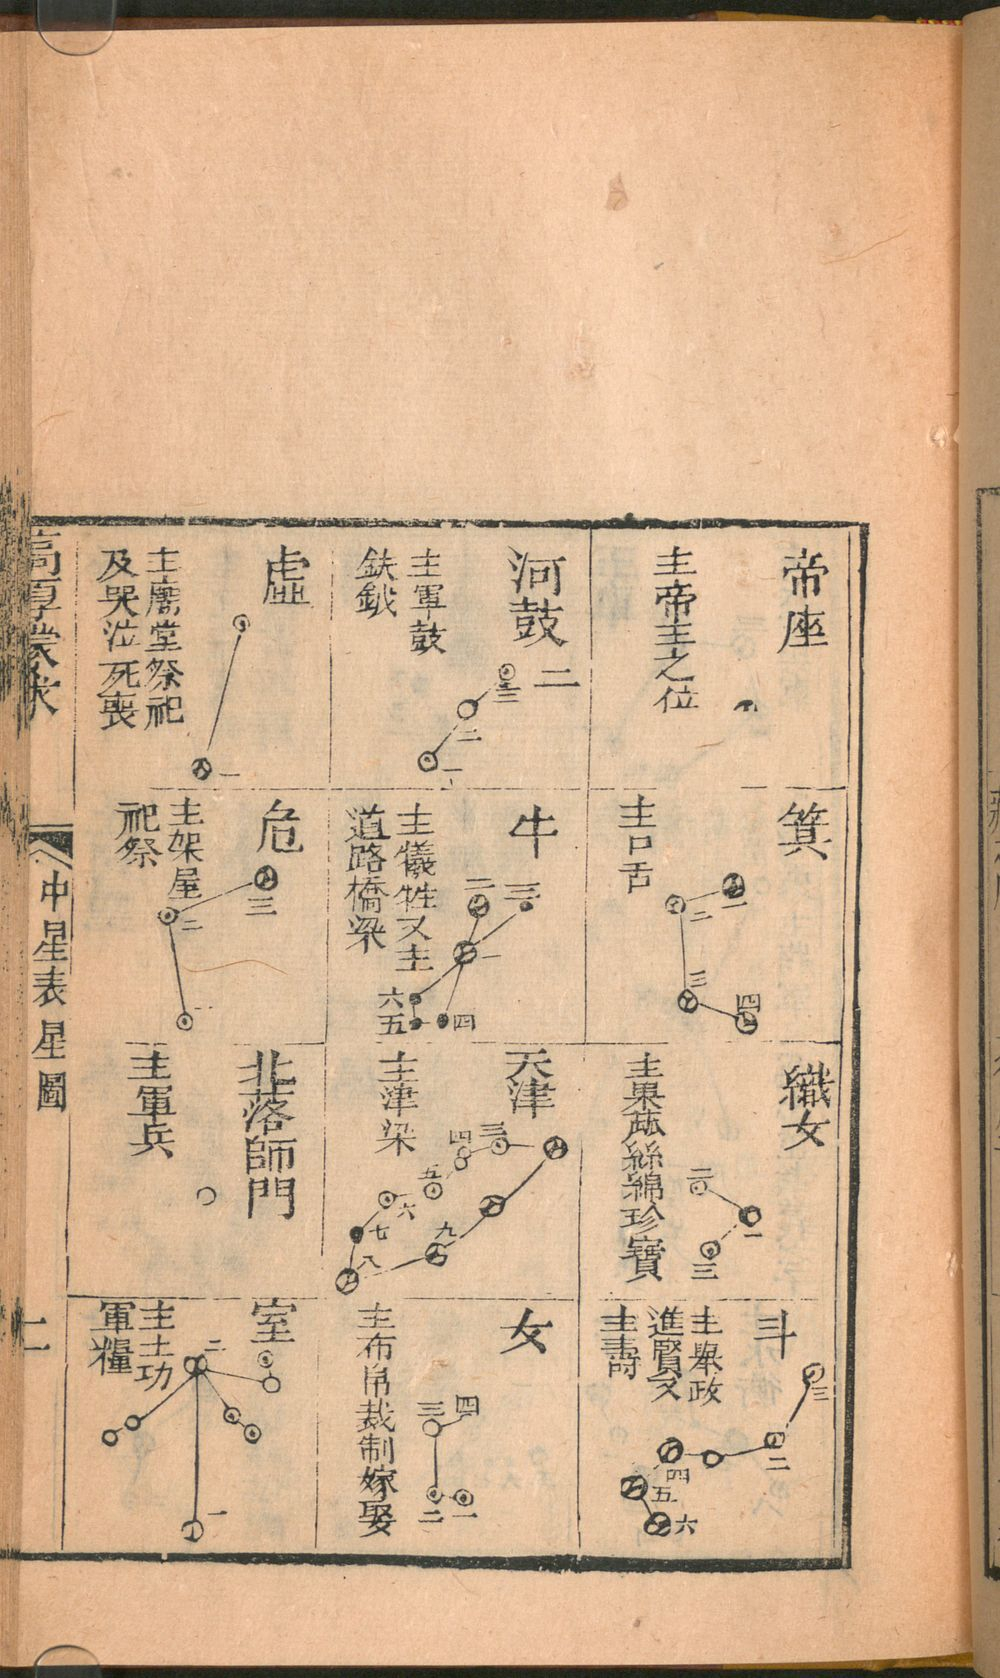 帝座
主帝王之位
箕
主口舌
一
二
三
四
織女
主果蓏絲綿珍寶
一
二
三
斗
主舉政
進賢又
主壽
二
三
四
五
六
河鼓二
主軍鼓
鈇鉞
一
二
三
牛
主犧牲又主
道路橋梁
一
二
三
四
五
六
天津
主津梁
三
四
五
六
七
八
九
女
主布帛裁制嫁娶
一
二
三
四
虛
主廟堂祭祀
及哭泣死喪
一
危
主架屋
祀祭
一
二
三
北落師門
主軍兵
室
主土功
軍糧
一
二
高厚蒙求
中星表 星圖